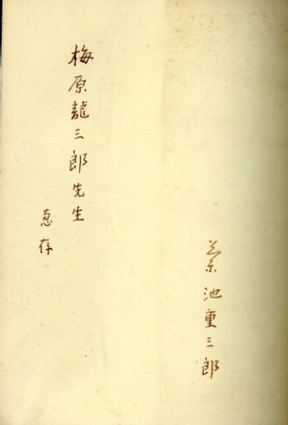 梅原龍三郎先生
恵存
菊池重三郎